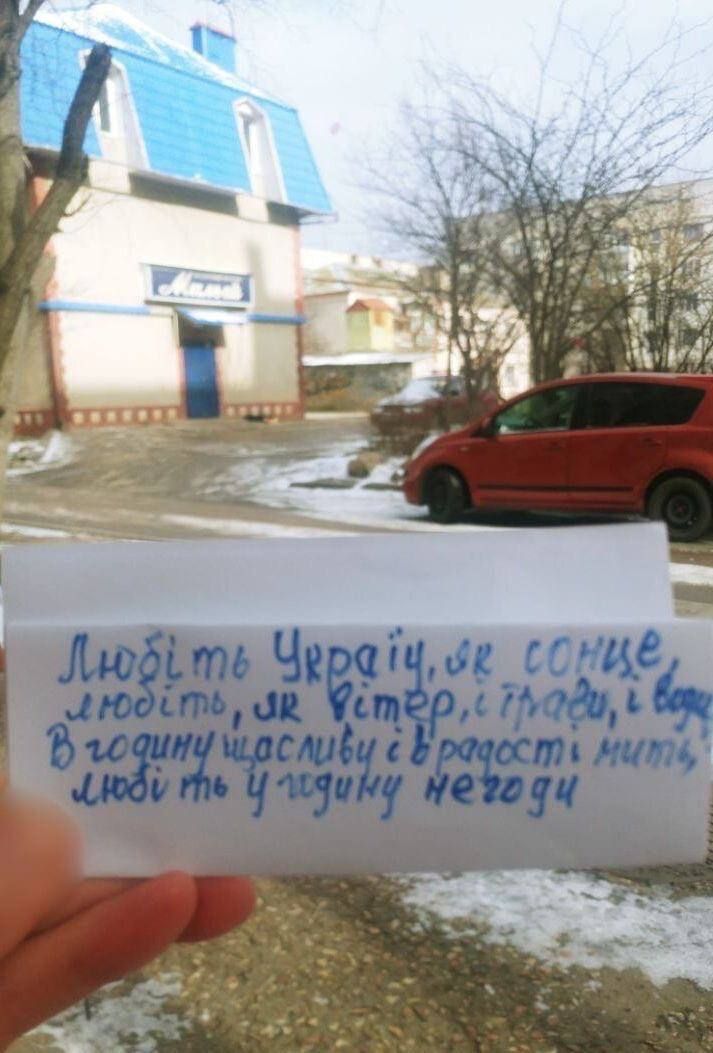 Любіть Украіїу, як сонце,
любіть, як вітер, і трави, і води
В годину щасливу і в радості мить,
любіть у годину негоди